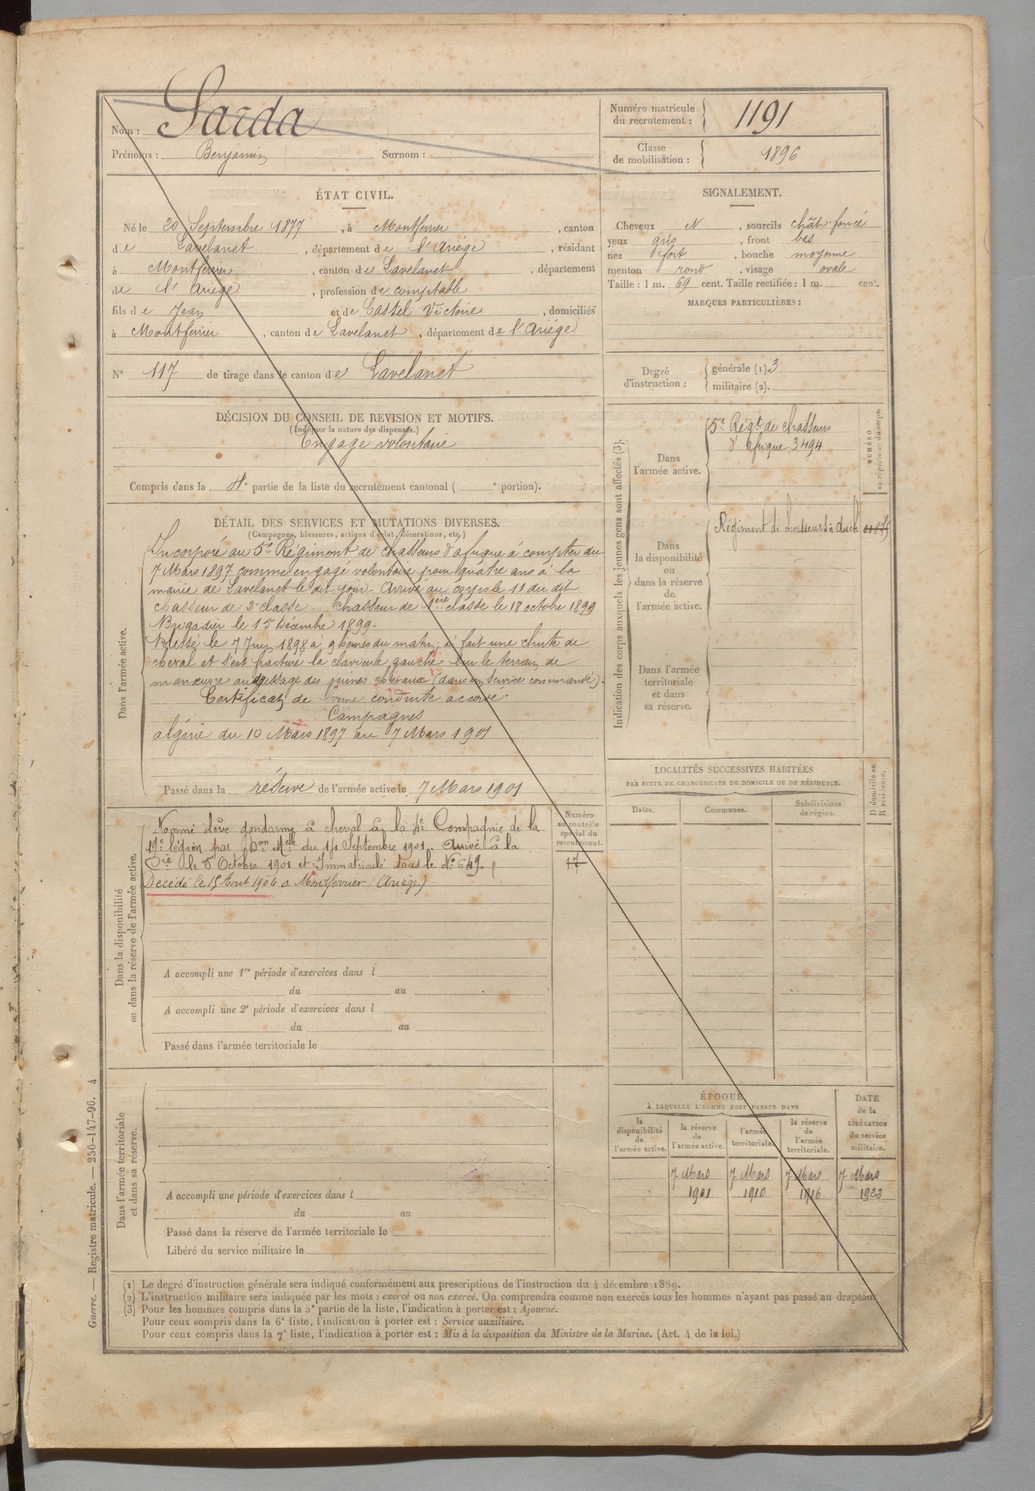 Nom : Sarda
Prénoms : Benjamin Surnom :
Numéro matricule
du recrutement : 1191
Classe
de mobilisation : 1896
ÉTAT CIVIL.
Né le 20 Septembre 1877, à Montferrier, canton
de Lavelanet, département de l'Ariège, résidant
à Montferrier, canton de Lavelanet, département
de l'Ariège, profession de comptable
fils de Jean et de Castel Victoire, domiciliés
à Montferrier, canton de Lavelanet, département de l'Ariège
N° 117 de tirage dans le canton de Lavelanet
SIGNALEMENT.
Cheveux N, sourcils chât. foncé
yeux gris, front bas
nez fort, bouche moyenne
menton rond, visage ovale
Taille : 1 m. 69 cent. Taille rectifiée : 1 m. cent.
MARQUES PARTICULIÈRES :
Degré
d'instruction :
générale (1) 3
militaire (2).
DÉCISION DU CONSEIL DE REVISION ET MOTIFS.
(Indiquer la nature des dispenses.)
Engagé volontaire
Compris dans la 4e partie de la liste du recrutement cantonal ( e portion).
DÉTAIL DES SERVICES ET MUTATIONS DIVERSES.
(Campagnes, blessures, actions d'éclat, décorations, etc.)
Dans l'armée active.
Incorporé au 5e Régiment de chasseurs d'afrique à compter du
7 Mars 1897 comme engagé volontaire pour quatre ans à la
mairie de Lavelanet le dit jour. Arrivé au corps le 10 du dit
chasseur de 2e classe. Chasseur de 1ère classe le 18 octobre 1899
Brigadier le 15 Décembre 1899.
Blessé le 7 Juin 1898 à 9 heures du matin, a fait une chute de
cheval et s'est fracturé la clavicule gauche sur le terrain de
manœuvre au dressage des jeunes chevaux (dans un service commandé).
Certificat de bonne conduite accordé.
Campagnes
algérie du 10 Mars 1897 au 7 Mars 1901
Passé dans la réserve de l'armée active le 7 Mars 1901
Dans la disponibilité
ou dans la réserve de l'armée active.
Nommé élève gendarme à cheval à la 4e Compagnie de la
19e légion par Don Melle du 14 Septembre 1901. Arrivé à la
Cie le 5 Octobre 1901 et Immatriculé sous le N° 649.
Décédé le 15 Aout 1904 à Montferrier (Ariège)
Numéro
au contrôle
spécial du
recrutement.
17
A accompli une 1re période d'exercices dans l
du au
A accompli une 2e période d'exercices dans l
du au
Passé dans l'armée territoriale le
Dans l'armée territoriale
et dans sa réserve.
A accompli une période d'exercices dans l
du au
Passé dans la réserve de l'armée territoriale le
Libéré du service militaire le
Indication des corps auxquels les jeunes gens sont affectés (3).
NUMÉRO
au répertoire du corps
Dans
l'armée active.
5e Régt de chasseurs
d'afrique 3494
Dans
la disponibilité
ou
dans la réserve
de
l'armée active.
Régiment de chasseurs à Auch
Dans l'armée
territoriale
et dans
sa réserve.
LOCALITÉS SUCCESSIVES HABITÉES
PAR SUITE DE CHANGEMENTS DE DOMICILE OU DE RÉSIDENCE.
Dates.
Communes.
Subdivisions
de région.
D domicile ou
R résidence.
ÉPOQUE
À LAQUELLE L'HOMME DOIT PASSER DANS
la
disponibilité
de
l'armée active.
la réserve
de
l'armée active.
l'armée
territoriale.
la réserve
de
l'armée
territoriale.
DATE
de la
LIBÉRATION
du service
militaire.
7 Mars 7 Mars 7 Mars 7 Mars
1901 1910 1916 1923
(1) Le degré d'instruction générale sera indiqué conformément aux prescriptions de l'instruction du 4 décembre 1889.
(2) L'instruction militaire sera indiquée par les mots : exercé ou non exercé. On comprendra comme non exercés tous les hommes n'ayant pas passé au drapeau.
(3) Pour les hommes compris dans la 5e partie de la liste, l'indication à porter est : Ajourné.
Pour ceux compris dans la 6e liste, l'indication à porter est : Service auxiliaire.
Pour ceux compris dans la 7e liste, l'indication à porter est : Mis à la disposition du Ministre de la Marine. (Art. 4 de la loi.)
Guerre. — Registre matricule. — 256-147-96. 4